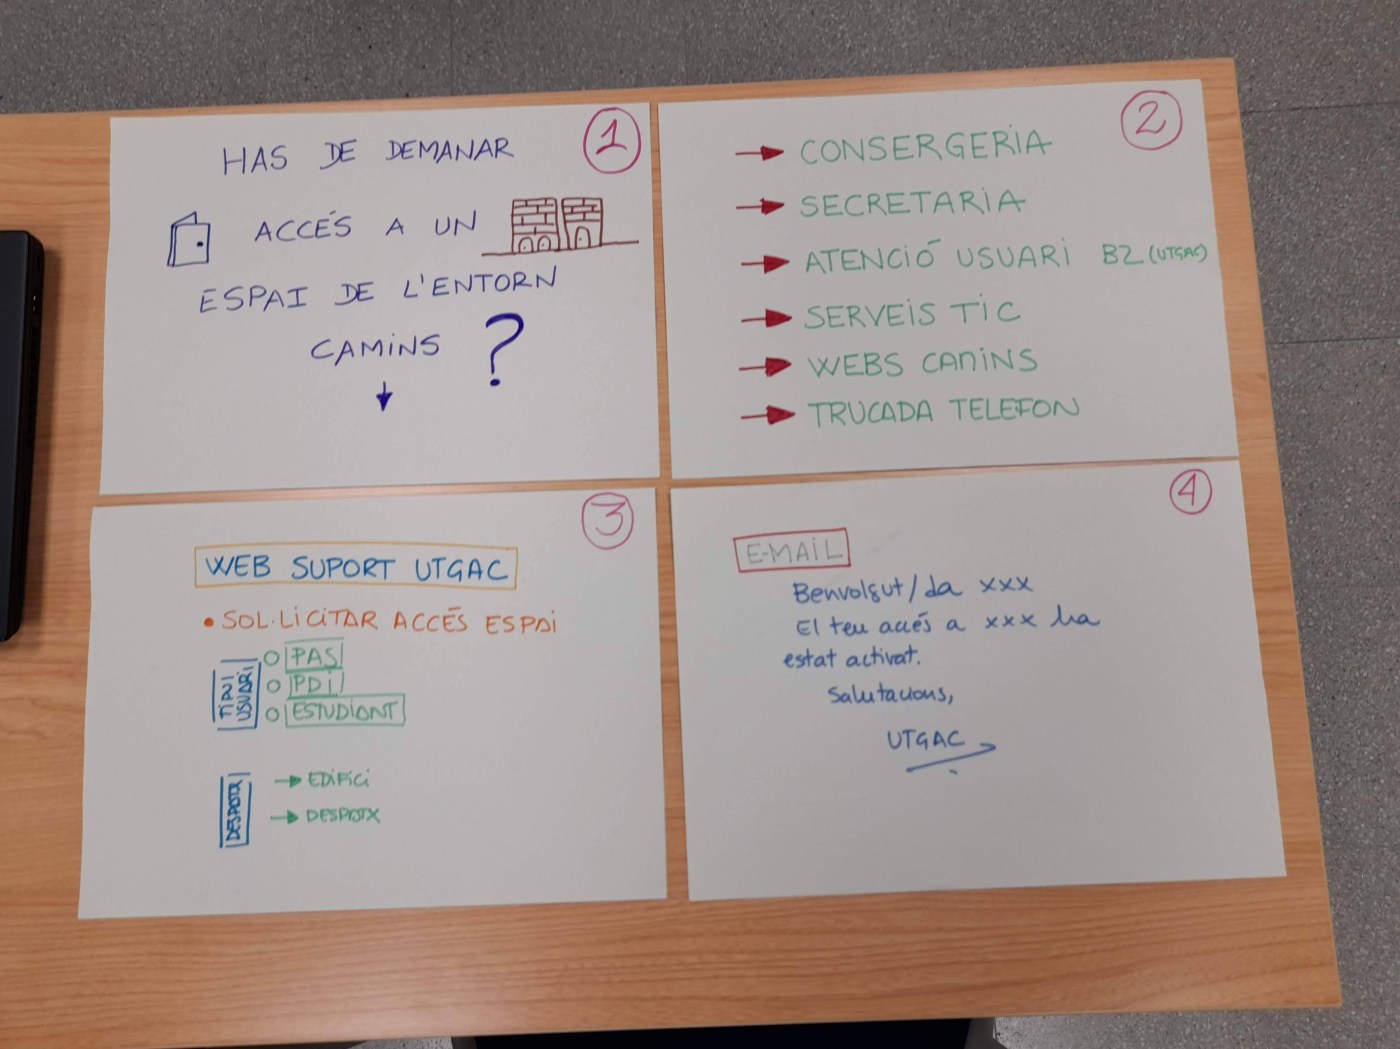 1
HAS DE DEMANAR
ACCÉS A UN
ESPAI DE L'ENTORN
CAMINS ?
2
CONSERGERIA
SECRETARIA
ATENCIÓ USUARI B2 (UTGAC)
SERVEIS TIC
WEBS CAMINS
TRUCADA TELEFON
3
WEB SUPORT UTGAC
• SOL·LICITAR ACCÉS ESPAI
TIPUS
USUARI
PAS
PDI
ESTUDIANT
DESPATX
→ EDIFICI
→ DESPATX
4
E-MAIL
Benvolgut/da xxx
El teu accés a xxx ha
estat activat.
Salutacions,
UTGAC